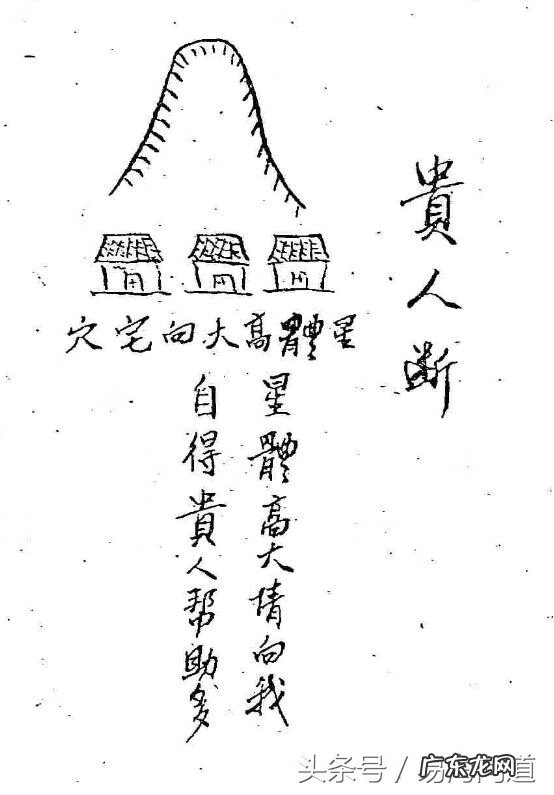 貴人断
星體高大向宅穴
星體高大情向我
自得貴人帮助多
头条号／易
广东龙网
道